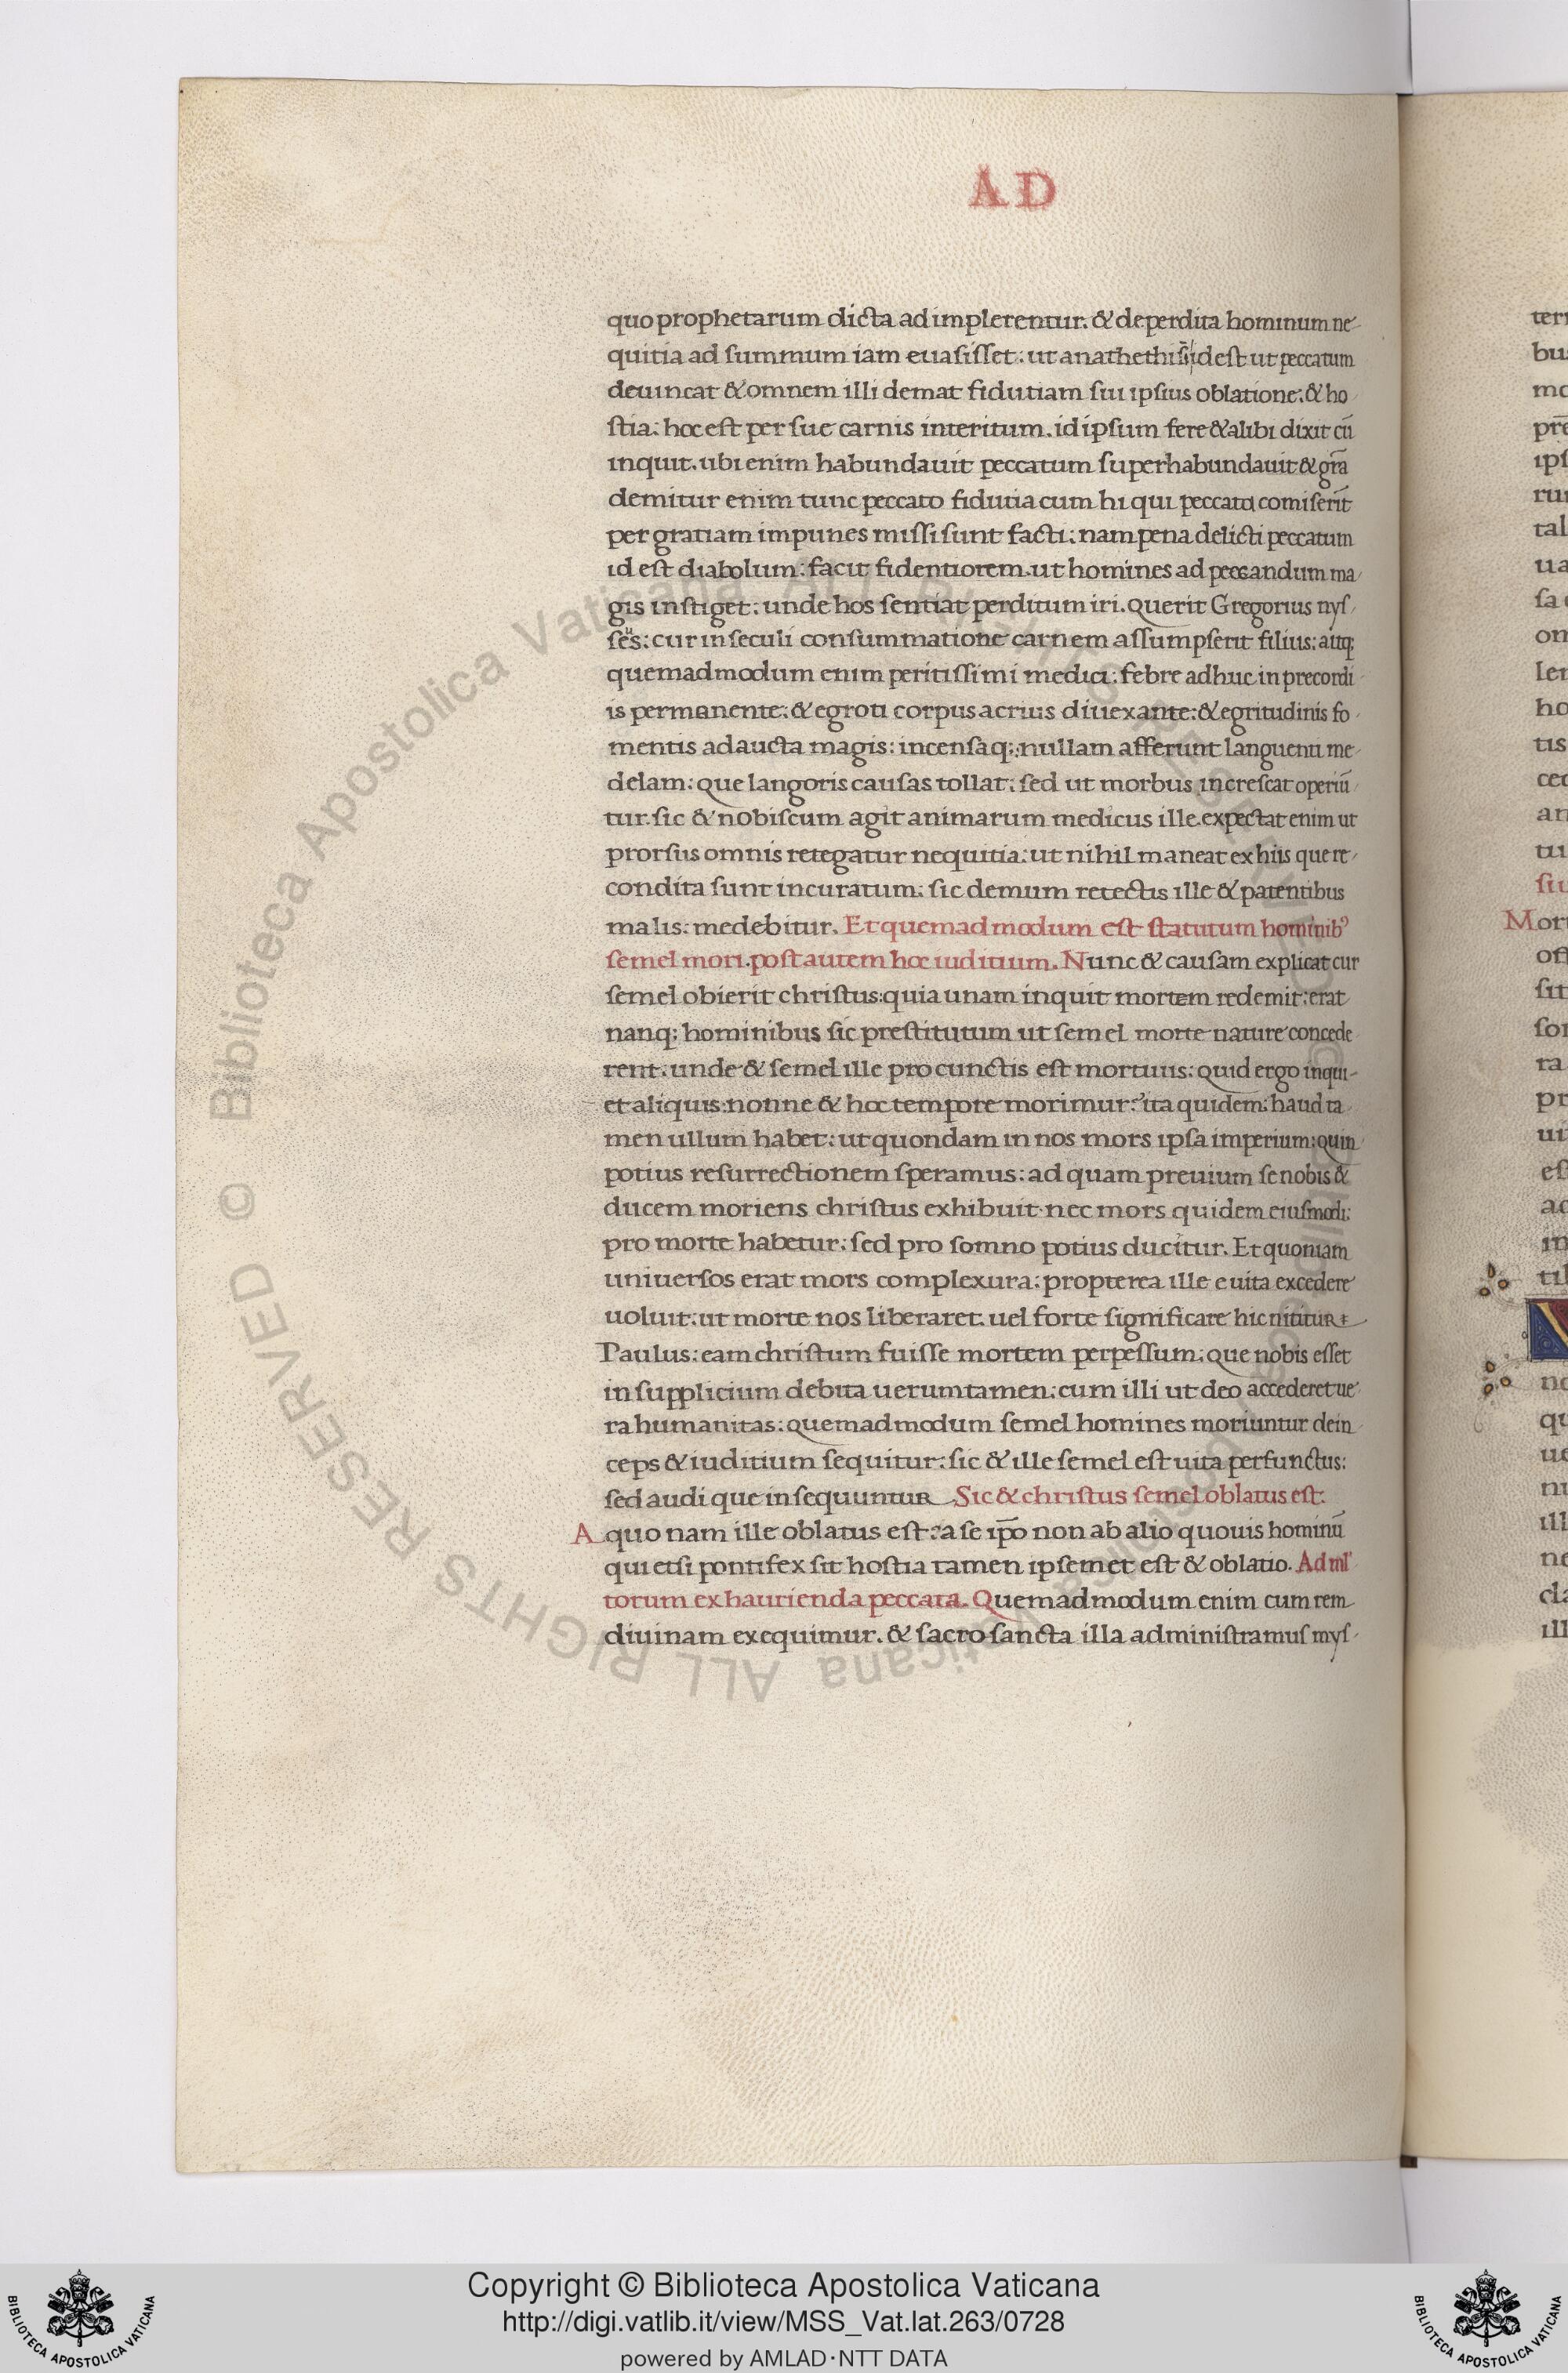 AD
quo prophetarum dicta adimplerentur. & deperdita hominum ne
quitia ad summum iam euasisset: ut anathethisi idest ut peccatum
deuincat & omnem illi demat fidutiam sui ipsius oblatione: & ho
stia: hoc est per sue carnis interitum. id ipsum fere & alibi dixit cū
inquit. ubi enim habundauit peccatum superhabundauit & grā
demitur enim tunc peccato fidutia cum hi qui peccata comiserīt
per gratiam impunes missi sunt facti: nam pena delicti peccatum
id est diabolum: facit fidentiorem. ut homines ad peccandum ma
gis instiget: unde hos sentiat perditum iri. Querit Gregorius nys
seus: cur in seculi consummatione carnem assumpserit filius: aitq;
quemadmodum enim peritissimi medici: febre adhuc in precordi
is permanente: & egroti corpus acrius diuexante: & egritudinis fo
mentis adaucta magis: incensaq; nullam afferunt languenti me
delam: que langoris causas tollat: sed ut morbus increscat operiū
tur. sic & nobiscum agit animarum medicus ille. expectat enim ut
prorsus omnis retegatur nequitia: ut nihil maneat ex hiis que re
condita sunt incuratum: sic demum retectis ille & patentibus
malis: medebitur. Et quemadmodum est statutum hominib9
semel mori. post autem hoc iuditium. Nunc & causam explicat cur
semel obierit christus: quia unam inquit mortem redemit: erat
nanq; hominibus sic prestitutum ut semel morte nature concede
rent: unde & semel ille pro cunctis est mortuus: Quid ergo inqui
et aliquis: nonne & hoc tempore morimur? ita quidem: haud ta
men ullum habet: ut quondam in nos mors ipsa imperium: quin
potius resurrectionem speramus: ad quam preuium se nobis &
ducem moriens christus exhibuit. nec mors quidem eiusmodi:
pro morte habetur: sed pro somno potius ducitur. Et quoniam
uniuersos erat mors complexura: propterea ille e uita excedere
uoluit: ut morte nos liberaret. uel forte significare hic nititur
Paulus: eam christum fuisse mortem perpessum: que nobis esset
in supplicium debita uerumtamen: cum illi ut deo accederet ue
ra humanitas: quemadmodum semel homines moriuntur dein
ceps & iuditium sequitur: sic & ille semel est uita perfunctus:
sed audi que insequuntur Sic & christus semel oblatus est.
A quo nam ille oblatus est: a se ip̄o non ab alio quouis hominū
qui etsi pontifex sit hostia tamen ipsemet est & oblatio. Ad ml'
torum exhaurienda peccata. Quemadmodum enim cum rem
diuinam exequimur. & sacrosancta illa administramus mys
© Biblioteca Apostolica Vaticana ALL RIGHTS RESERVED
Copyright © Biblioteca Apostolica Vaticana
http://digi.vatlib.it/view/MSS_Vat.lat.263/0728
powered by AMLAD·NTT DATA
BIBLIOTECA APOSTOLICA VATICANA
BIBLIOTECA APOSTOLICA VATICANA